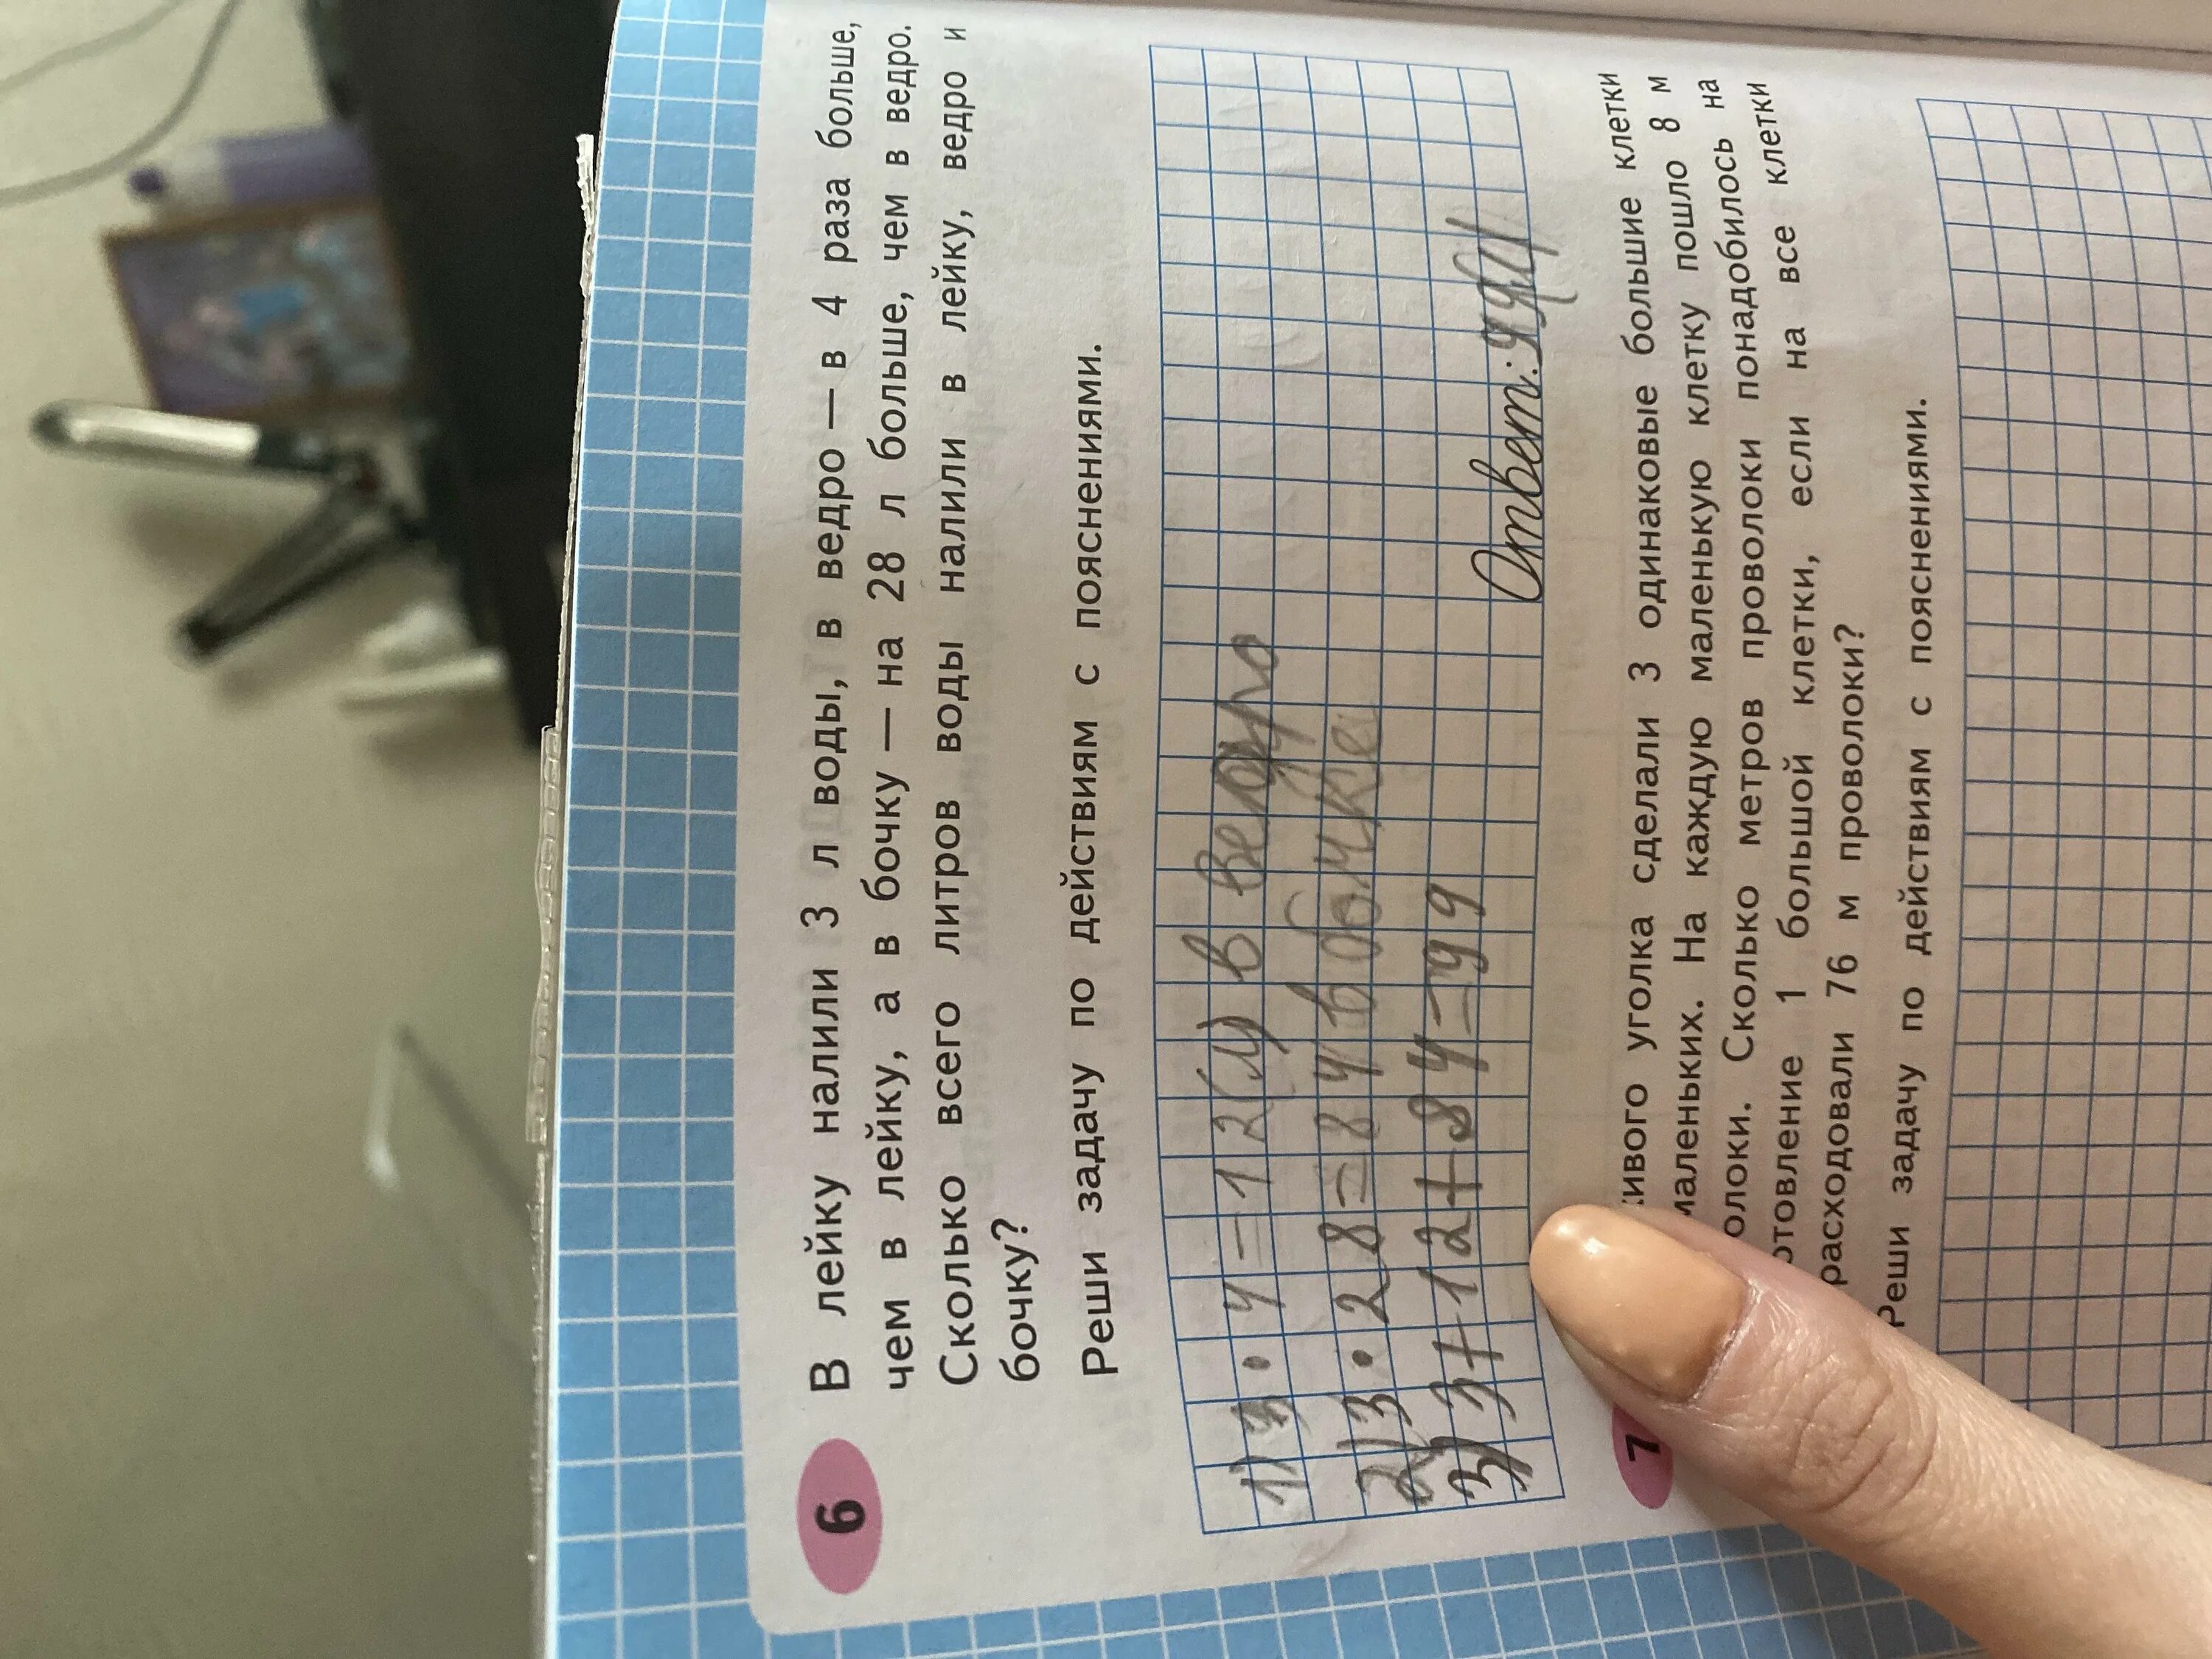 6
В лейку налили 3 л воды, в ведро — в 4 раза больше,
чем в лейку, а в бочку — на 28 л больше, чем в ведро.
Сколько всего литров воды налили в лейку, ведро и
бочку?
Реши задачу по действиям с пояснениями.
1) 3 · 4 = 12 (л) в ведро
2) 3 · 28 = 84 в бочке
3) 3 + 12 + 84 = 99
Ответ: 99
7
живого уголка сделали 3 одинаковые большие клетки
маленьких. На каждую маленькую клетку пошло 8 м
олоки. Сколько метров проволоки понадобилось на
отовление 1 большой клетки, если на все клетки
расходовали 76 м проволоки?
Реши задачу по действиям с пояснениями.